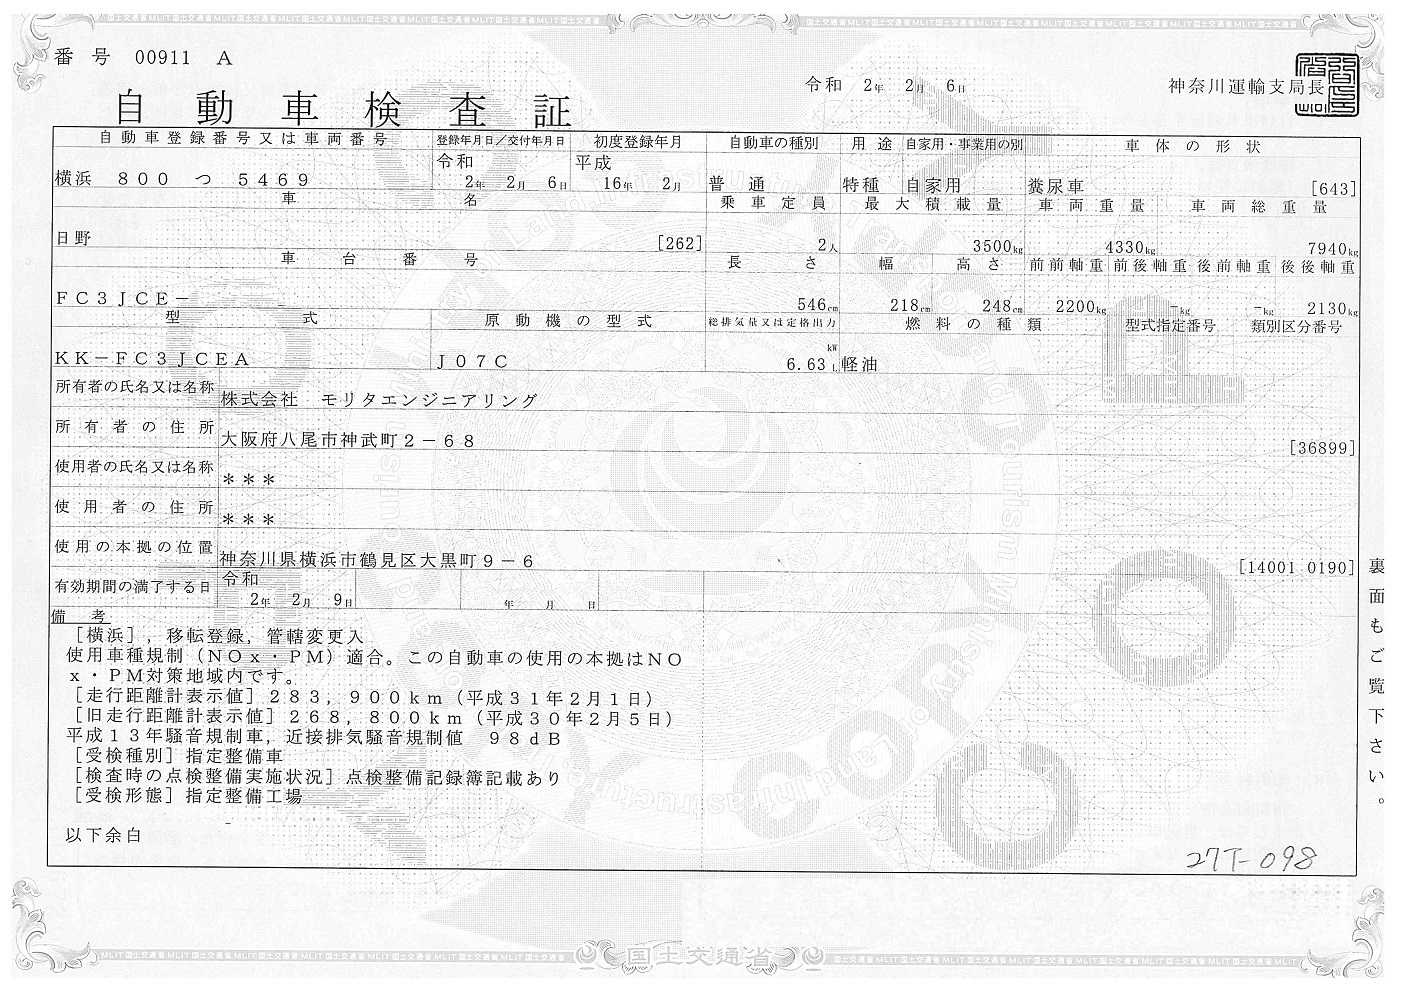 番号 00911 A
令和 2年 2月 6日 神奈川運輸支局長
自動車検査証
自動車登録番号又は車両番号 登録年月日／交付年月日 初度登録年月 自動車の種別 用途 自家用・事業用の別 車体の形状
令和 平成
横浜 800 つ 5469 2年 2月 6日 16年 2月 普通 特種 自家用 糞尿車 [643]
車名 乗車定員 最大積載量 車両重量 車両総重量
日野 [262] 2人 3500kg 4330kg 7940kg
車台番号 長さ 幅 高さ 前前軸重 前後軸重 後前軸重 後後軸重
FC3JCE- 546cm 218cm 248cm 2200kg -kg -kg 2130kg
型式 原動機の型式 総排気量又は定格出力 燃料の種類 型式指定番号 類別区分番号
kW
KK-FC3JCEA J07C 6.63 L 軽油
所有者の氏名又は名称 株式会社 モリタエンジニアリング
所有者の住所 大阪府八尾市神武町2-68 [36899]
使用者の氏名又は名称 ***
使用者の住所 ***
使用の本拠の位置 神奈川県横浜市鶴見区大黒町9-6 [14001 0190]
有効期間の満了する日 令和
2年 2月 9日 年 月 日
備考
[横浜]，移転登録，管轄変更入
使用車種規制（NOx・PM）適合。この自動車の使用の本拠はNO
x・PM対策地域内です。
[走行距離計表示値] 283，900km（平成31年2月1日）
[旧走行距離計表示値] 268，800km（平成30年2月5日）
平成13年騒音規制車，近接排気騒音規制値 98dB
[受検種別] 指定整備車
[検査時の点検整備実施状況] 点検整備記録簿記載あり
[受検形態] 指定整備工場
以下余白
27T-098
裏面もご覧下さい。
国土交通省